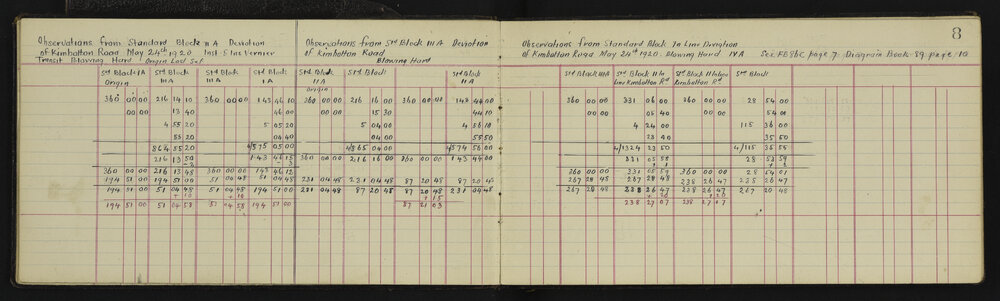 8
Observations from Standard Block III A Deviation
of Kimbolton Road May 24th 1920 Inst. 5 ins Vernier
Transit Blowing Hard Origin Last Set
Std Block IA Std Block Std Block Std Block
Origin III A III A I A
360 00 00 216 14 10 360 00 00 143 46 10
00 00 13 40 46 00
4 55 20 5 05 20
55 20 04 40
864 55 20 4/575 05 00
216 13 50 143 46 15
360 00 00 216 13 48 360 00 00 143 46 12
194 51 00 51 04 48 51 04 48 194 51 00
194 51 00 51 04 48 51 04 48 194 51 00
+ 10 + 10
194 51 00 51 04 58 51 04 58 194 51 00
Observations from Std Block III A Deviation
of Kimbolton Road
Blowing Hard
Std Block Std Block Std Block
Origin
III A III A
360 00 00 216 16 00 360 00 00 143 44 00
00 00 15 30 44 10
5 04 00 4 56 10
04 00 55 50
4/865 04 00 4/574 56 00
360 00 00 216 16 00 360 00 00 143 44 00
231 04 48 231 04 48 87 20 48 231 04 48
231 04 48 87 20 48 87 20 48 231 04 48
+ 15
87 21 03
Observations from Standard Block In Line Deviation
of Kimbolton Road May 24th 1920 Blowing Hard IV A See FB 56c page 7 Diagram Book 89 page 10
Std Block IIIA Std Block II In Std Block II In Line Std Block
Line Kimbolton Rd Kimbolton Rd
360 00 00 331 06 00 360 00 00 28 54 00
00 00 05 40 54 00
4 24 00 115 36 00
23 40 35 50
4/1324 23 50 4/115 35 55
331 05 58 28 53 59
360 00 00 331 05 59 360 00 00 28 54 01
267 28 48 267 28 48 238 26 47 238 26 47
267 28 48 238 26 47 238 26 47 267 20 48
+ 20 + 20
238 27 07 238 27 07